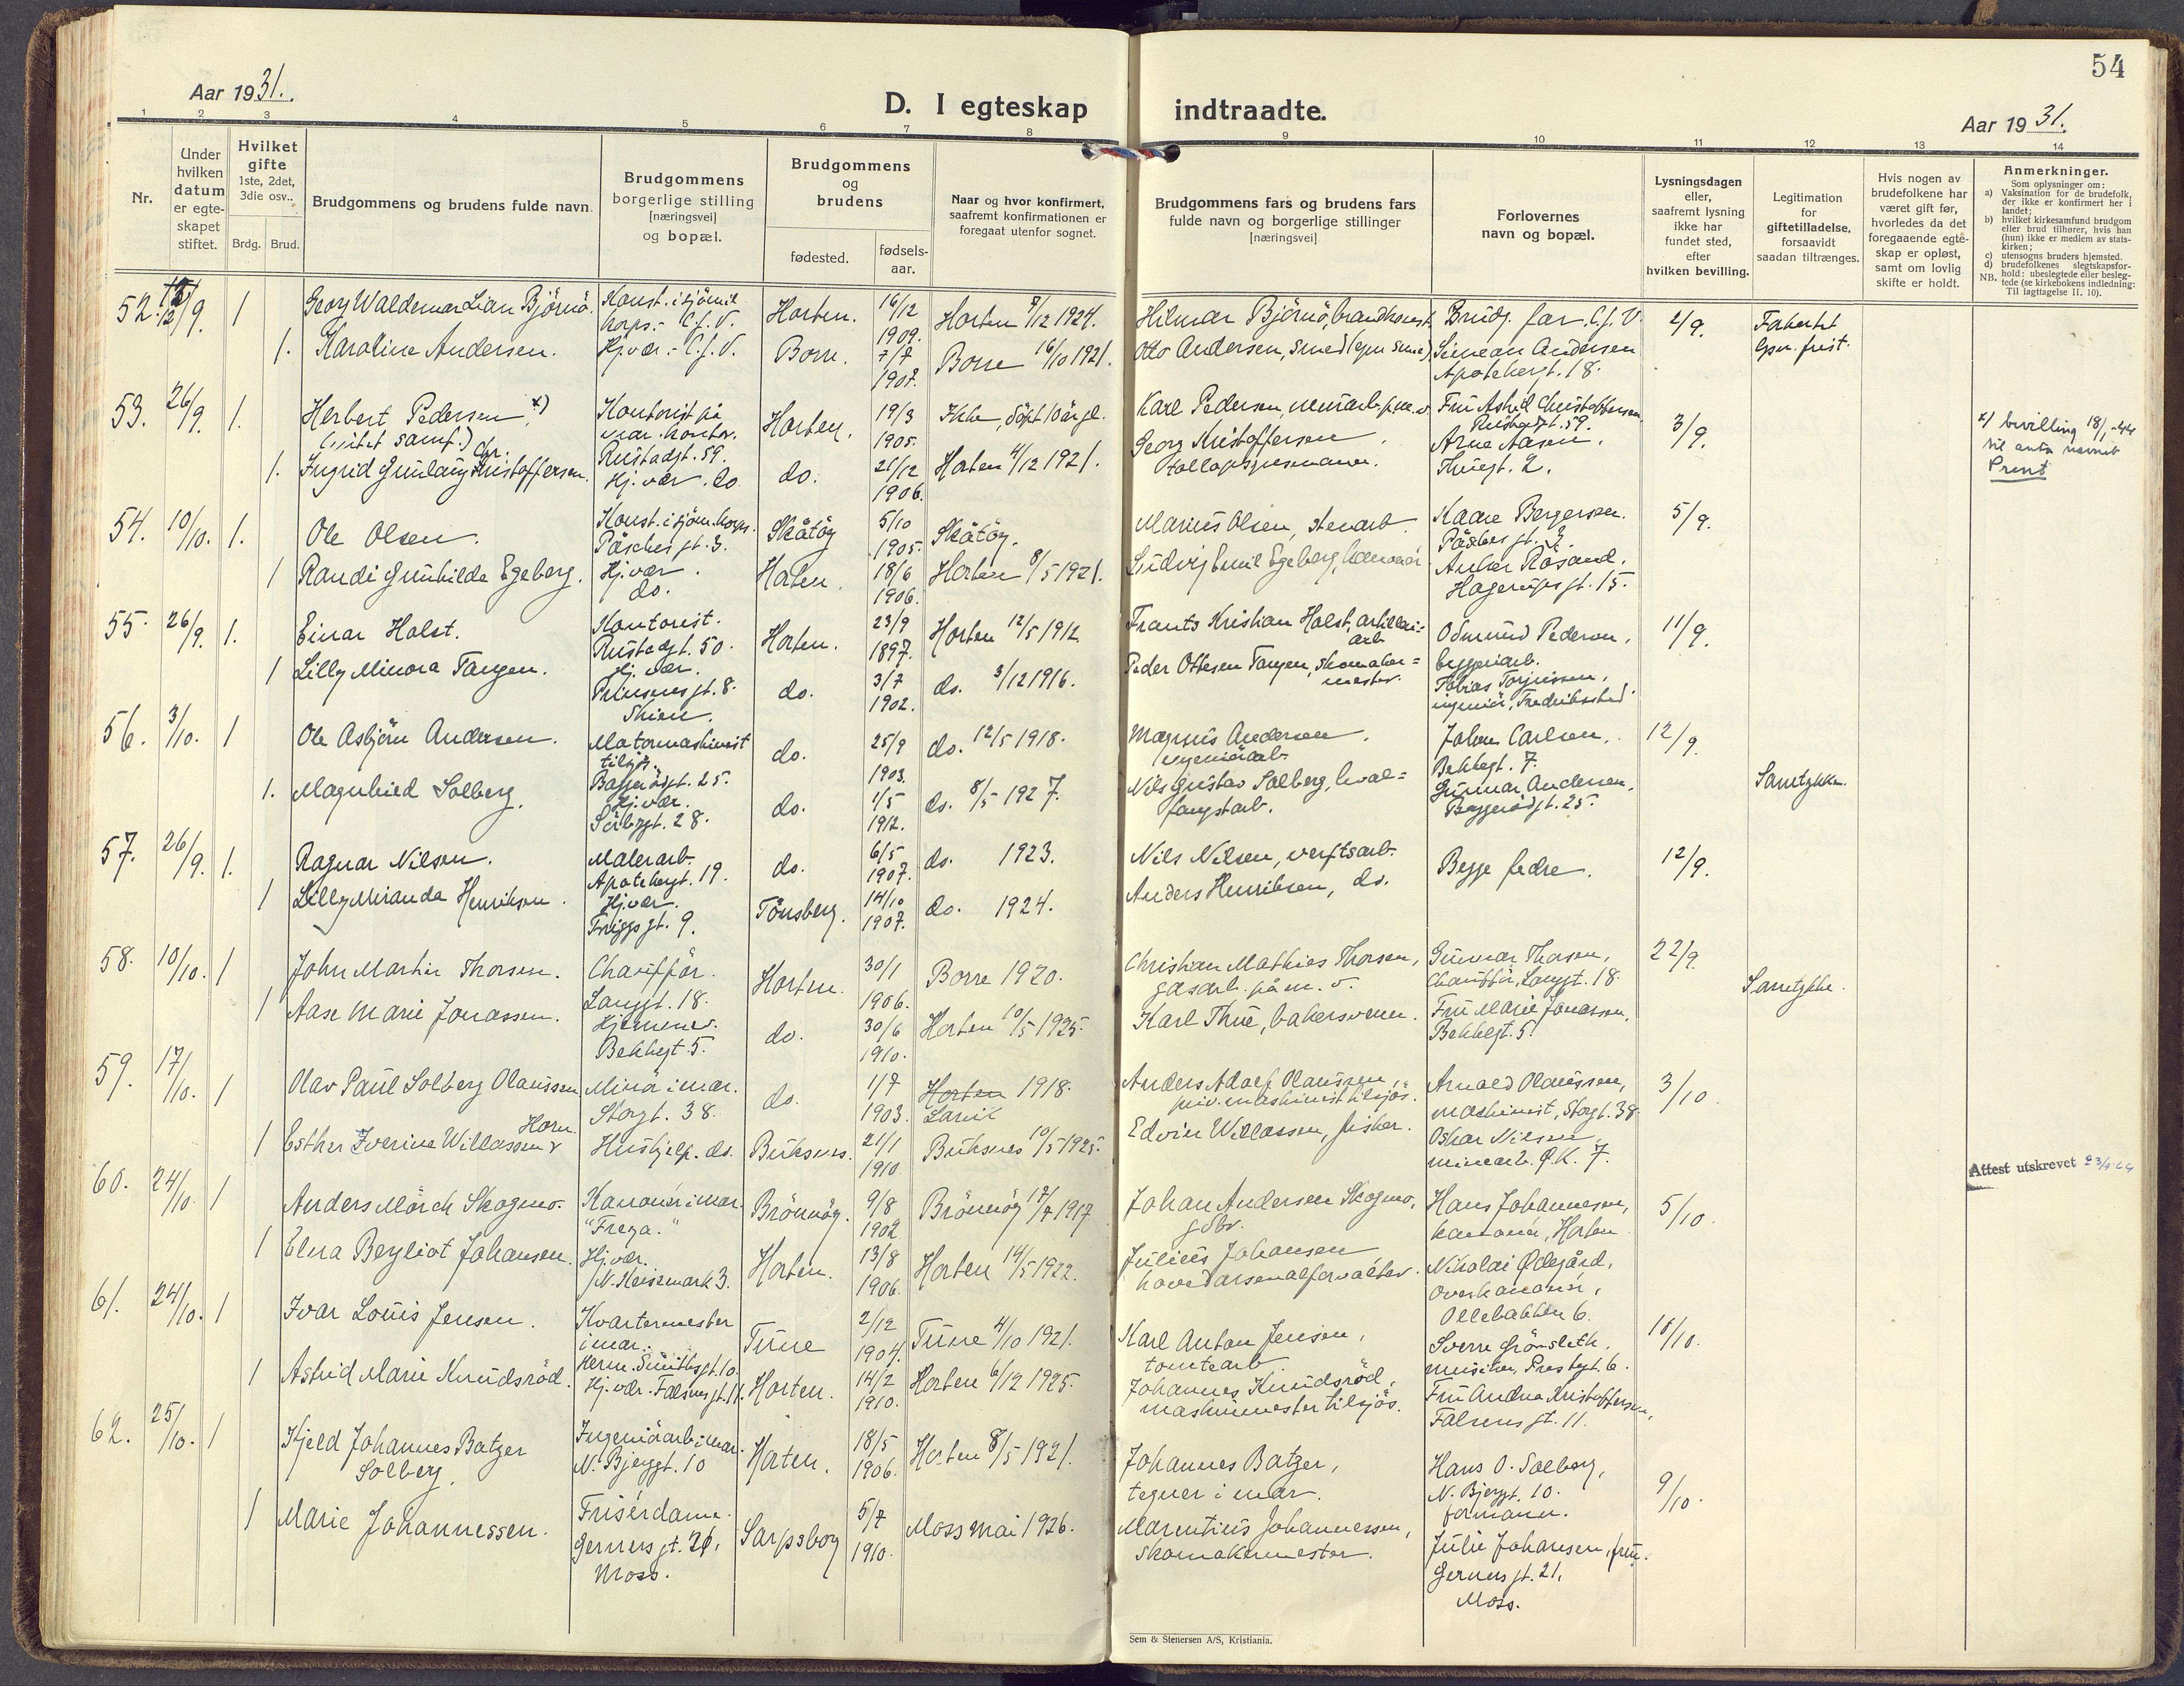 54
Aar 1931.
D. I egteskap indtraadte.
Aar 1931.
1 2 3 4 5 6 7 8 9 10 11 12 13 14
Nr.
Under hvilken datum er egte-skapet stiftet.
Hvilket gifte 1ste, 2det, 3die osv..
Brdg. Brud.
Brudgommens og brudens fulde navn.
Brudgommens borgerlige stilling [næringsvei] og bopæl.
Brudgommens og brudens
fødested.
fødsels-aar.
Naar og hvor konfirmert, saafremt konfirmationen er foregaat utenfor sognet.
Brudgommens fars og brudens fars fulde navn og borgerlige stillinger [næringsvei]
Forlovernes navn og bopæl.
Lysningsdagen eller, saafremt lysning ikke har fundet sted, efter hvilken bevilling.
Legitimation for giftetilladelse, forsaavidt saadan tiltrænges.
Hvis nogen av brudefolkene har været gift før, hvorledes da det foregaaende egte-skap er opløst, samt om lovlig skifte er holdt.
Anmerkninger.
Som oplysninger om:
a) Vaksination for de brudefolk, der ikke er konfirmert her i landet;
b) hvilket kirkesamfund brudgom eller brud tilhører, hvis han (hun) ikke er medlem av stats-kirken;
c) utensogns bruders hjemsted.
d) brudefolkenes slegtskapsfor-hold: ubeslegtede eller besleg-tede (se kirkebokens indledning:
NB. Til iagttagelse II. 10).
52. 1 Georg Waldemar Lian Björnö. Horten. 16/12 1909. Horten 7/12 1924. Hilmar Björnö, Brudg. far. C.J.V. 2/9. Forkortet lysn. frist.
1. Karoline Andersen. Hj.vær. - C.J.V. Borre. 7/7 1907. Borre 16/10 1921. Otto Andersen, smed Simeon Andersen Apotekergt. 18.
53. 26/9. 1. Herbert Pedersen x) Kontorist på mar. kontor. Rustadgt. 59. Horten. 19/3 1905. Ikke, döpt 10 år gl. Karl Pedersen, Fru Astrid Christoffersen Rustadgt. 59. 3/9. x) bevilling 18/1-44 til anta navnet Prent
1. Ingrid Gunlaug Kristoffersen. Hj.vær. do do. 21/12 1906. Horten 4/12 1921. Georg Kristoffersen Arne Aasen. Thuegt. 2.
54. 10/10. 1. Ole Olsen. Päschesgt. 3. Skåtöy 5/10 1905. Skåtöy. Marius Olsen, stenarb. Kaare Bergersen. Päschesgt. 3. 5/9.
1 Randi Gunhilda Egeberg. Hj.vær. do. Horten. 18/6 1906. Horten 8/5 1921. Ludvig Emil Egeberg, Anker Räsand. 15.
55. 26/9. 1. Einar Holst. Kontorist. Rustadgt. 50. Horten. 23/9 1897. Horten 12/5 1912 Frants Kristian Holst, artilleri=arb Odmund Pedersen, byggeriarb. 11/9.
1 Lilly Minora Tangen. Hj.vær. Prinsensgt. 8. Skien. do. 3/7 1902. do. 3/12 1916. Peder Ottesen Tangen, skomaker=mester. Tobias Torjussen, ingeniör, Fredrikstad
56. 3/10. 1 Ole Asbjörn Andersen. Motormaskinist tilsjös. Baggerödgt. 25. do. 25/9 1903. do. 12/5 1918. Magnus Andersen, ingeniörarb. Johan Carlsen, Bekkegt. 7. 12/9.
1. Magnhild Solberg. Hj.vær. Sörbygt. 28. do. 1/5 1912. do. 8/5 1927. Nils Gustav Solberg, hval=fangstarb. Gunnar Andersen, Baggerödgt. 25. Samtykke.
57. 26/9. 1. Ragnar Nilsen. Malerarb. Apotekergt. 19. do. 6/5 1907. do. 1923. Nils Nilsen, verftsarb. Begge fedre. 12/9.
1 Lilly Miranda Henriksen. Hj.vær. Friggsgt. 9. Tönsberg. 14/10 1907. do. 1924. Anders Henriksen, do.
58. 10/10. 1 John Martin Thorsen. Chaufför. Langgt. 18. Horten. 30/1 1906. Borre 1920. Christian Mathies Thorsen, gasarb. på m. v. Gunnar Thorsen, Chaufför, Langgt. 18. 22/9.
1 Aase Marie Jonassen. Hjemmev. Bekkegt. 5. do. 30/6 1910. Horten 10/5 1925. Karl Thue, bakersvenn. Fru Marie Jonassen, Bekkegt. 5. Samtykke.
59. 17/10. 1 Olav Paul Solberg Olaussen Minör i mar. Storgt. 38. do. 1/7 1903. Horten 1918. Larvik Anders Adolf Olaussen, maskinist tilsjös. Arnold Olaussen, maskinist, Storgt. 38. 3/10
1 Esther Iverine Willassen Horn. Hushjelp. do. Buksnes. 21/1 1910 Buksnes 10/5 1925. Edvin Willassen, fisker. Oskar Nilsen minearb. Ø.K. 7.
Attest utskrevet
60. 24/10. 1 Anders Mörch Skogmo. Kanonér i mar. "Freya." Brönnöy. 9/8 1902 Brönnöy 17/7 1917 Johan Andersen Skogmo, gdbr. Hans Johannesen, kanonér, Horten 5/10.
1 Elna Bergliot Johansen. Hj.vær. Horten. 13/8 1906. Horten 14/5 1922. Julius Johansen hovedarsenalforvalter. Nikolai Ødegård, overkanonér, Ollebakken 6.
61. 24/10. 1 Ivar Louis Jensen. Kvartermester i mar. Herm. Smithsgt. 10. Tune 2/12 1904. Tune 4/10 1921. Karl Anton Jensen, tomtearb. Sverre Grönsleth, musiker, Prestegt. 6. 10/10.
1 Astrid Marie Knudsröd. Hj.vær. Falsensgt. 11. Horten. 14/2 1910. Horten 6/12 1925. Johannes Knudsröd, maskinmester tilsjös. Fru Andrea Kristoffersen, Falsensgt. 11.
62. 25/10. 1 Kjeld Johannes Batzer Solberg. Ingeniörarb. i mar. N. Bjerggt. 10 Horten. 18/5 1906. Horten 8/5 1921. Johannes Batzer, tegner i mar. Hans O. Solberg, N. Bjerggt. 10. formann. 9/10.
1 Marie Johannessen. Frisérdame. Gernersgt. 21, Moss. Sarpsborg 5/7 1910. Moss mai 1926. Marentius Johannessen, skomakermester. Julie Johansen, fru. Gernersgt. 21, Moss.
Sem & Stenersen A/S, Kristiania.